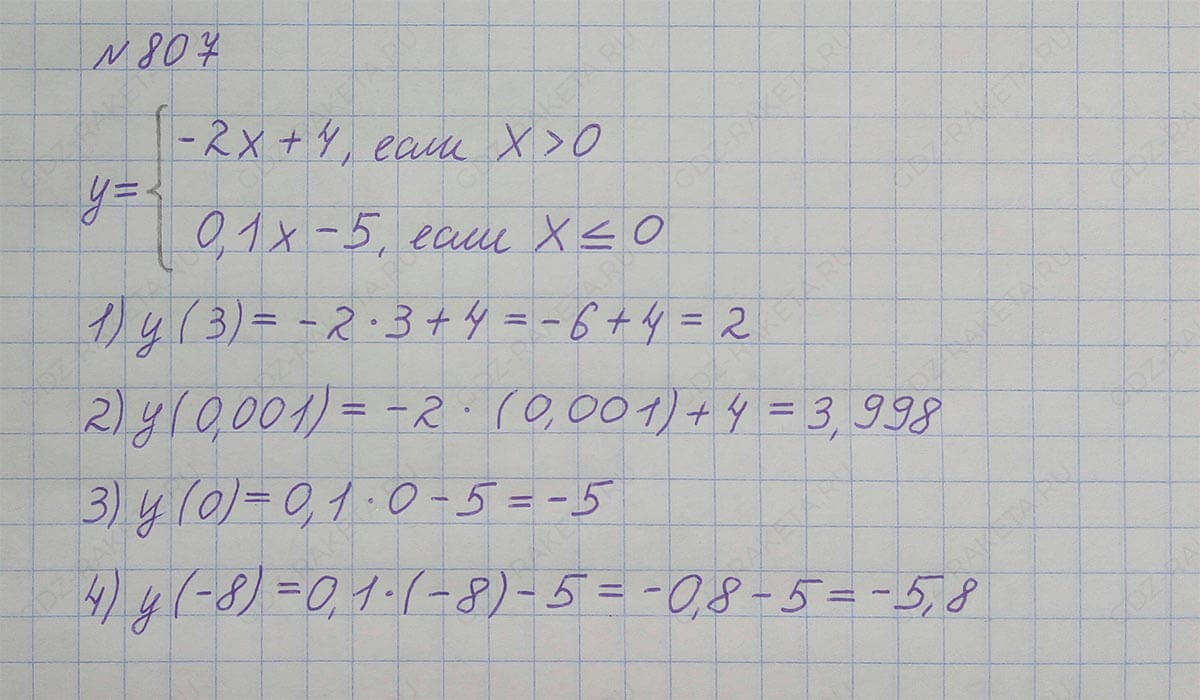 № 807
y = { -2x + 4, если x > 0
0,1x - 5, если x ≤ 0
1) y(3) = -2·3 + 4 = -6 + 4 = 2
2) y(0,001) = -2·(0,001) + 4 = 3,998
3) y(0) = 0,1·0 - 5 = -5
4) y(-8) = 0,1·(-8) - 5 = -0,8 - 5 = -5,8
GDZ-RAKETA.RU